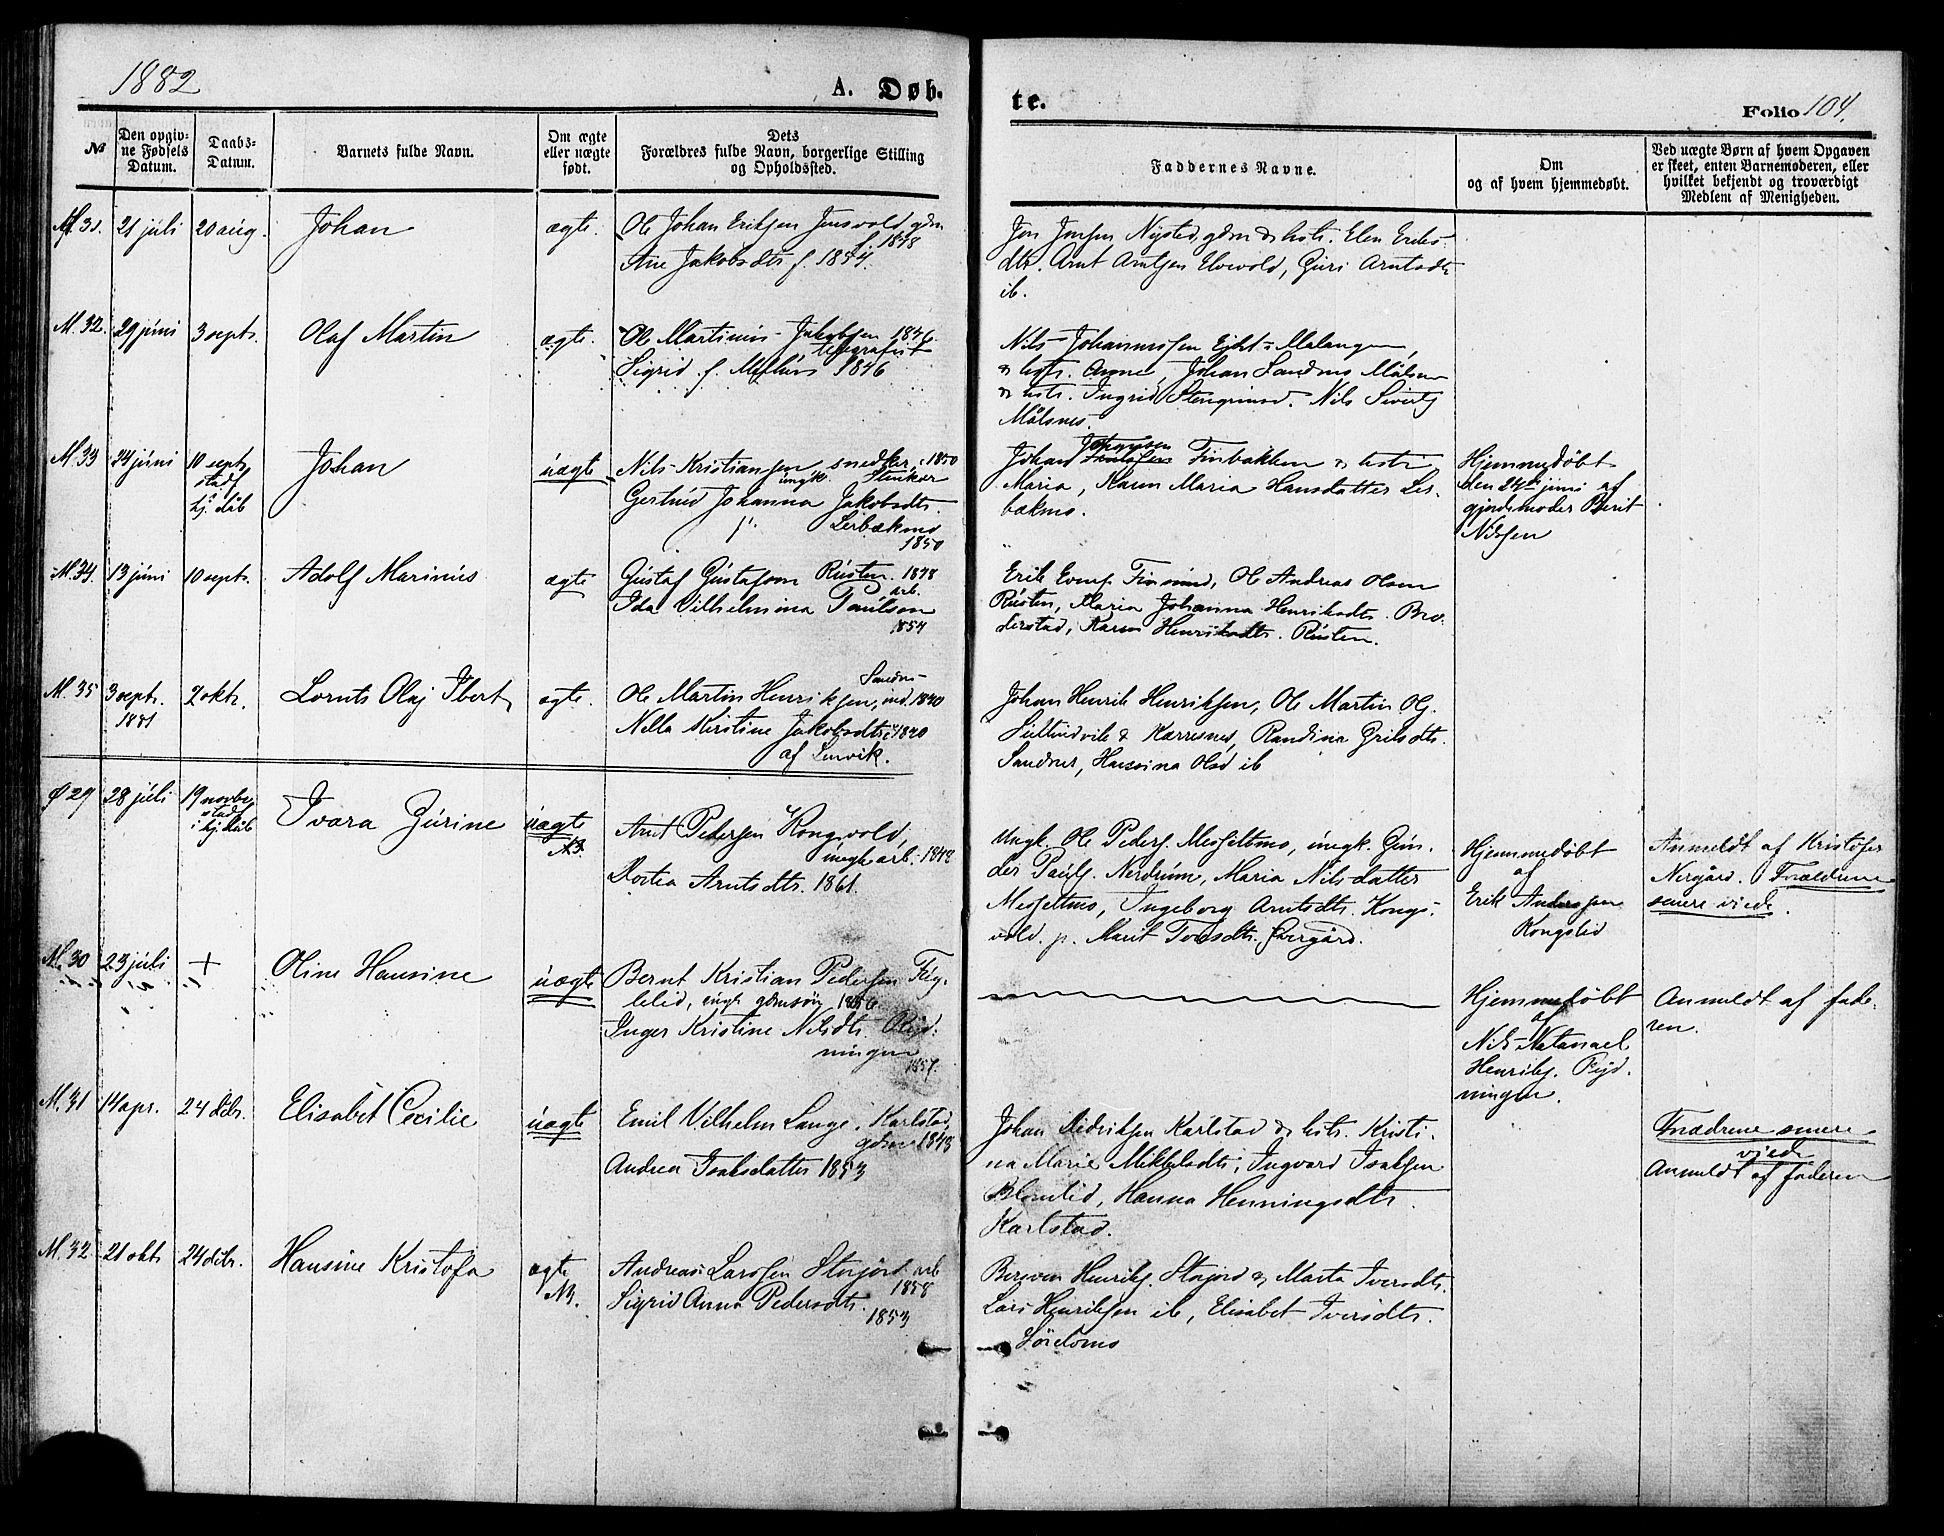 1882
A. Døb-
te.
Folio 104.
№
Den opgiv-
ne Fødsels
Datum.
Daabs-
Datum.
Barnets fulde Navn.
Om ægte
eller uægte
født.
Dets
Forældres fulde Navn, borgerlige Stilling
og Opholdssted.
Faddernes Navne.
Om
og af hvem hjemmedøbt.
Ved uægte Børn af hvem Opgaven
er skeet, enten Barnemoderen, eller
hvilket bekjendt og troværdigt
Medlem af Menigheden.
M. 31. 21 júli 20 aúg. Johan ægte.
Ole Johan Eriksen Jensvold gdm
f. 1848
Ane Jakobsdtr f. 1854.
Jon Jonsen Nysted, gdm & hstr. Elen Eriks-
dtr. Arnt Arntsen Elvevold, Guri Arntsdtr
ib.
M. 32. 29 júni 3 septr. Olaf Martin ægte.
Ole Martinus Jakobsen 1846.
telegrafist
Sigrid f. 1846
Nils Johannessen Malangen,
& hstr. Anne, Johan Sandmo Målsnes
& hstr. Ingrid Stengrimsd. Nils Sivertsen
Målsnes.
M. 33 24 júni 10 septr
stadf.
hj. dåb
Johan úægte
Nils Kristiansen snedker, 1850
úngk. Stenkær
Gertrud Johanna Jakobsdtr.
Leirbækmo
1850
Johan Johansen Finbakken & hstr.
Maria, Karen Maria Hansdatter Lei-
bækmo.
Hjemmedøbt
den 24de juni af
gjordemoder Berit
Nilsen
M. 34. 13 júni 10 septr. Adolf Marinús ægte
Gústaf Gústafson Rústen. 1848
arb.
Ida Vilhelmina Paúlson
1854
Erik Evens. Finsund, Ole Andreas Olsen
Rústen, Maria Johanna Henriksdtr. Bro-
derstad, Karen Henriksdtr. Rústen.
M. 35 3 septr.
1881
2 oktr. Lornts Olaj Ibert ægte.
Sandnes
Ole Martin Henriksen, ind. 1840
Nella Kirstine Jakobsdtr. 1840
af Lenvik.
Johan Henrik Henriksen, Ole Martin Olj.
Sultindvik & Karresnes, Randina Eriksdtr.
Sandnes, Hansina Olsd ib
Ø 29 28 júli 19 novbr
stadf.
i hj. dåb
Ivara Gúrine úægte
NB.
Arnt Pedersen Kongsvold,
úngk. arb. 1848
Dortea Arntsdtr. 1861.
Ungk. Ole Peders. Messeltmo, úngk. Gún-
der Paúls. Nerdrúm, Maria Nilsdatter
Messeltmo, Ingeborg Arntsdtr. Kongs-
vold. p. Marit Toresdtr.
Hjemmedøbt
af
Erik Andersen
Kongslid
Anmeldt af Kristofer
Nergård. Forældrene
senere viede.
M. 30 23 júli + Oline Hansine úægte
Bernt Kristian Pedersen Fúg-
lelid, úngk. gdmsøn 1856
Inger Kristine Nilsdtr.
ningen
1857.
Hjemmedøbt
af
Nils Natanael
Henriks.
ningen.
Anmeldt af fade-
ren.
M. 31 14 apr. 24 debr. Elisabet Cecilie úægte
Emil Vilhelm Lange, Karlstad,
gdm 1848
Andrea Isaksdatter 1853
Johan Karlstad & hstr. Kristi-
na Marie Mikkelsdtr, Ingvard Isaksen
Blomlid, Hanna Henningsdtr.
Karlstad.
Forældrene senere
viede
Anmeldt af faderen
M. 32. 21 oktr 24 debr. Hansine Kristofa ægte
NB.
Andreas Larssen Storjord arb
1858
Sigrid Anna Pedersdtr.
1853
Henriks. Storjord & Marta Iversdtr.
Lars Henriksen ib, Elisabet Iversdtr.